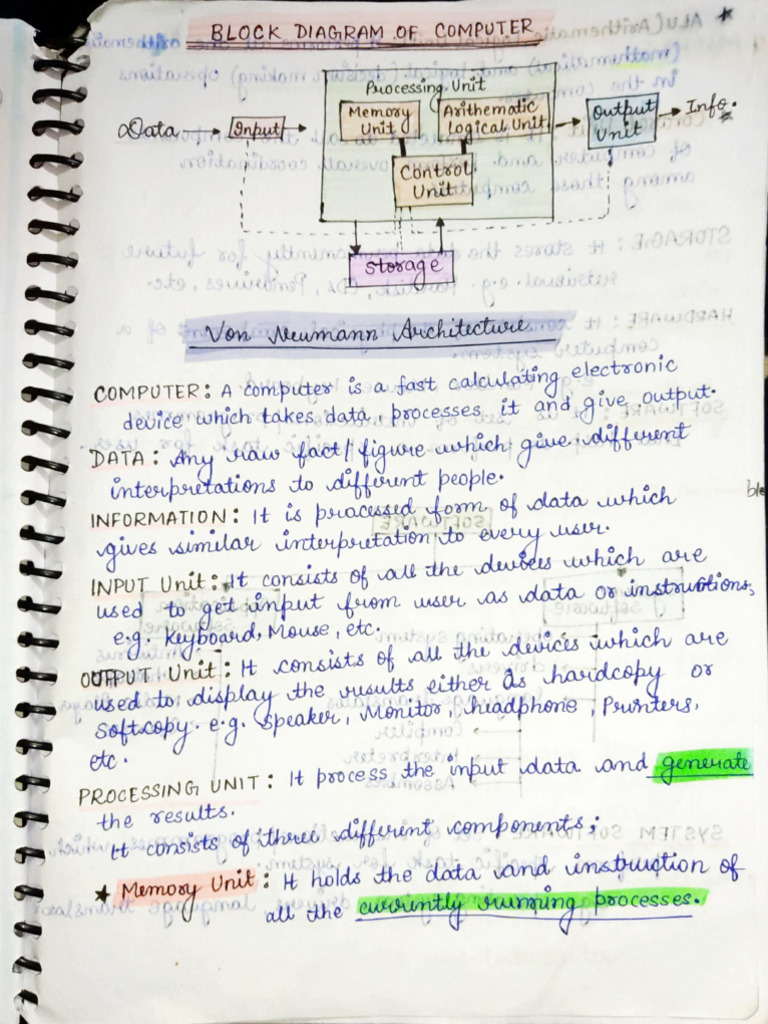 BLOCK DIAGRAM OF COMPUTER
Processing Unit
Data
Input
Memory
Unit
Arithematic
Logical Unit
Control
Unit
Output
Unit
Info.
Storage
Von Neumann Architecture
COMPUTER: A computer is a fast calculating electronic
device which takes data, processes it and give output.
DATA: Any raw fact/figure which give different
interpretations to different people.
INFORMATION: It is processed form of data which
gives similar interpretation to every user.
INPUT Unit: It consists of all the devices which are
used to get input from user as data or instructions,
e.g. Keyboard, Mouse, etc.
OUTPUT Unit: It consists of all the devices which are
used to display the results either as hardcopy or
Softcopy. e.g. Speaker, Monitor, headphone, Printers,
etc.
PROCESSING UNIT: It process the input data and generate
the results.
It consists of three different components;
★ Memory Unit: It holds the data and instruction of
all the currently running processes.